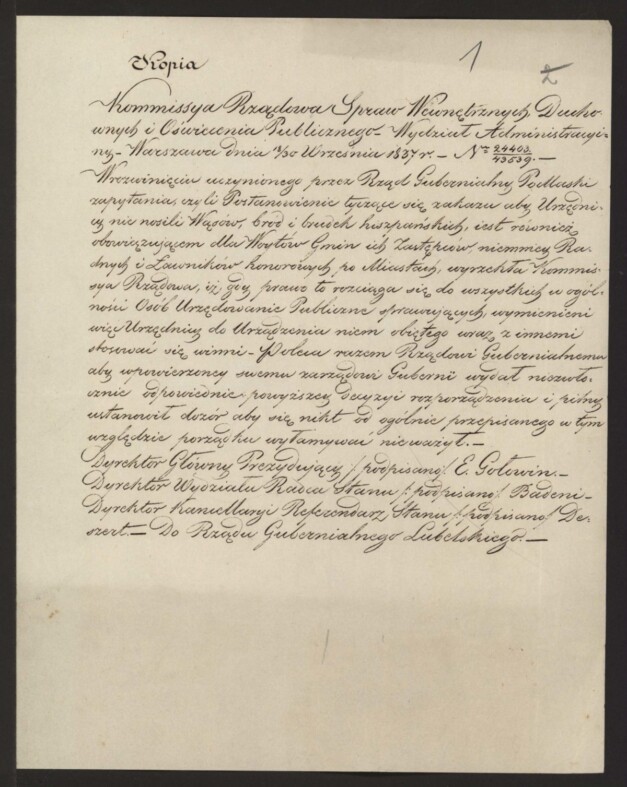 1
2
Kopia
Kommissya Rządowa Spraw Wewnętrznych Ducho-
wnych i Oświecenia Publicznego – Wydział Administracyi-
ny – Warszawa dnia Września 1837 r. – Nro 24403/43539. –
Wrozwinięciu uczynionego przez Rząd Gubernialny Podlaski
zapytania, czyli Postanowienie tyczące się zakazu aby Urzędni-
cy nie nosili Wąsów, bród i brudek hiszpańskich, iest również
obowiązuiącem dla Woytów Gmin ich Zastępców, niemniey Ra-
dnych i Ławników honorowych, po Miastach, wyrzekła Kommis-
sya Rządowa, iż gdy prawo to rozciąga się do wszystkich w ogól-
ności Osób Urzędowanie Publiczne sprawuiących, wymienieni
więc Urzędnicy do Urządzenia niem obiętego wraz z innemi
stosować się winni – Poleca razem Rządowi Gubernialnemu
aby wpowierzoney swemu zarządowi Gubernii wydał niezwło-
cznie odpowiednie powyższey decyzyi rozporządzenia i pilny
ustanowił dozór aby się nikt od ogólnie przepisanego w tym
względzie porządku wyłamywać nieważył. –
Dyrektor Główny Prezyduiący /: podpisano/ E. Gołowin. –
Dyrektor Wydziału Radca Stanu /: podpisano/ Badeni –
Dyrektor Kancellaryi Referendarz Stanu /: podpisano/ De-
szert. – Do Rządu Gubernialnego Lubelskiego. –